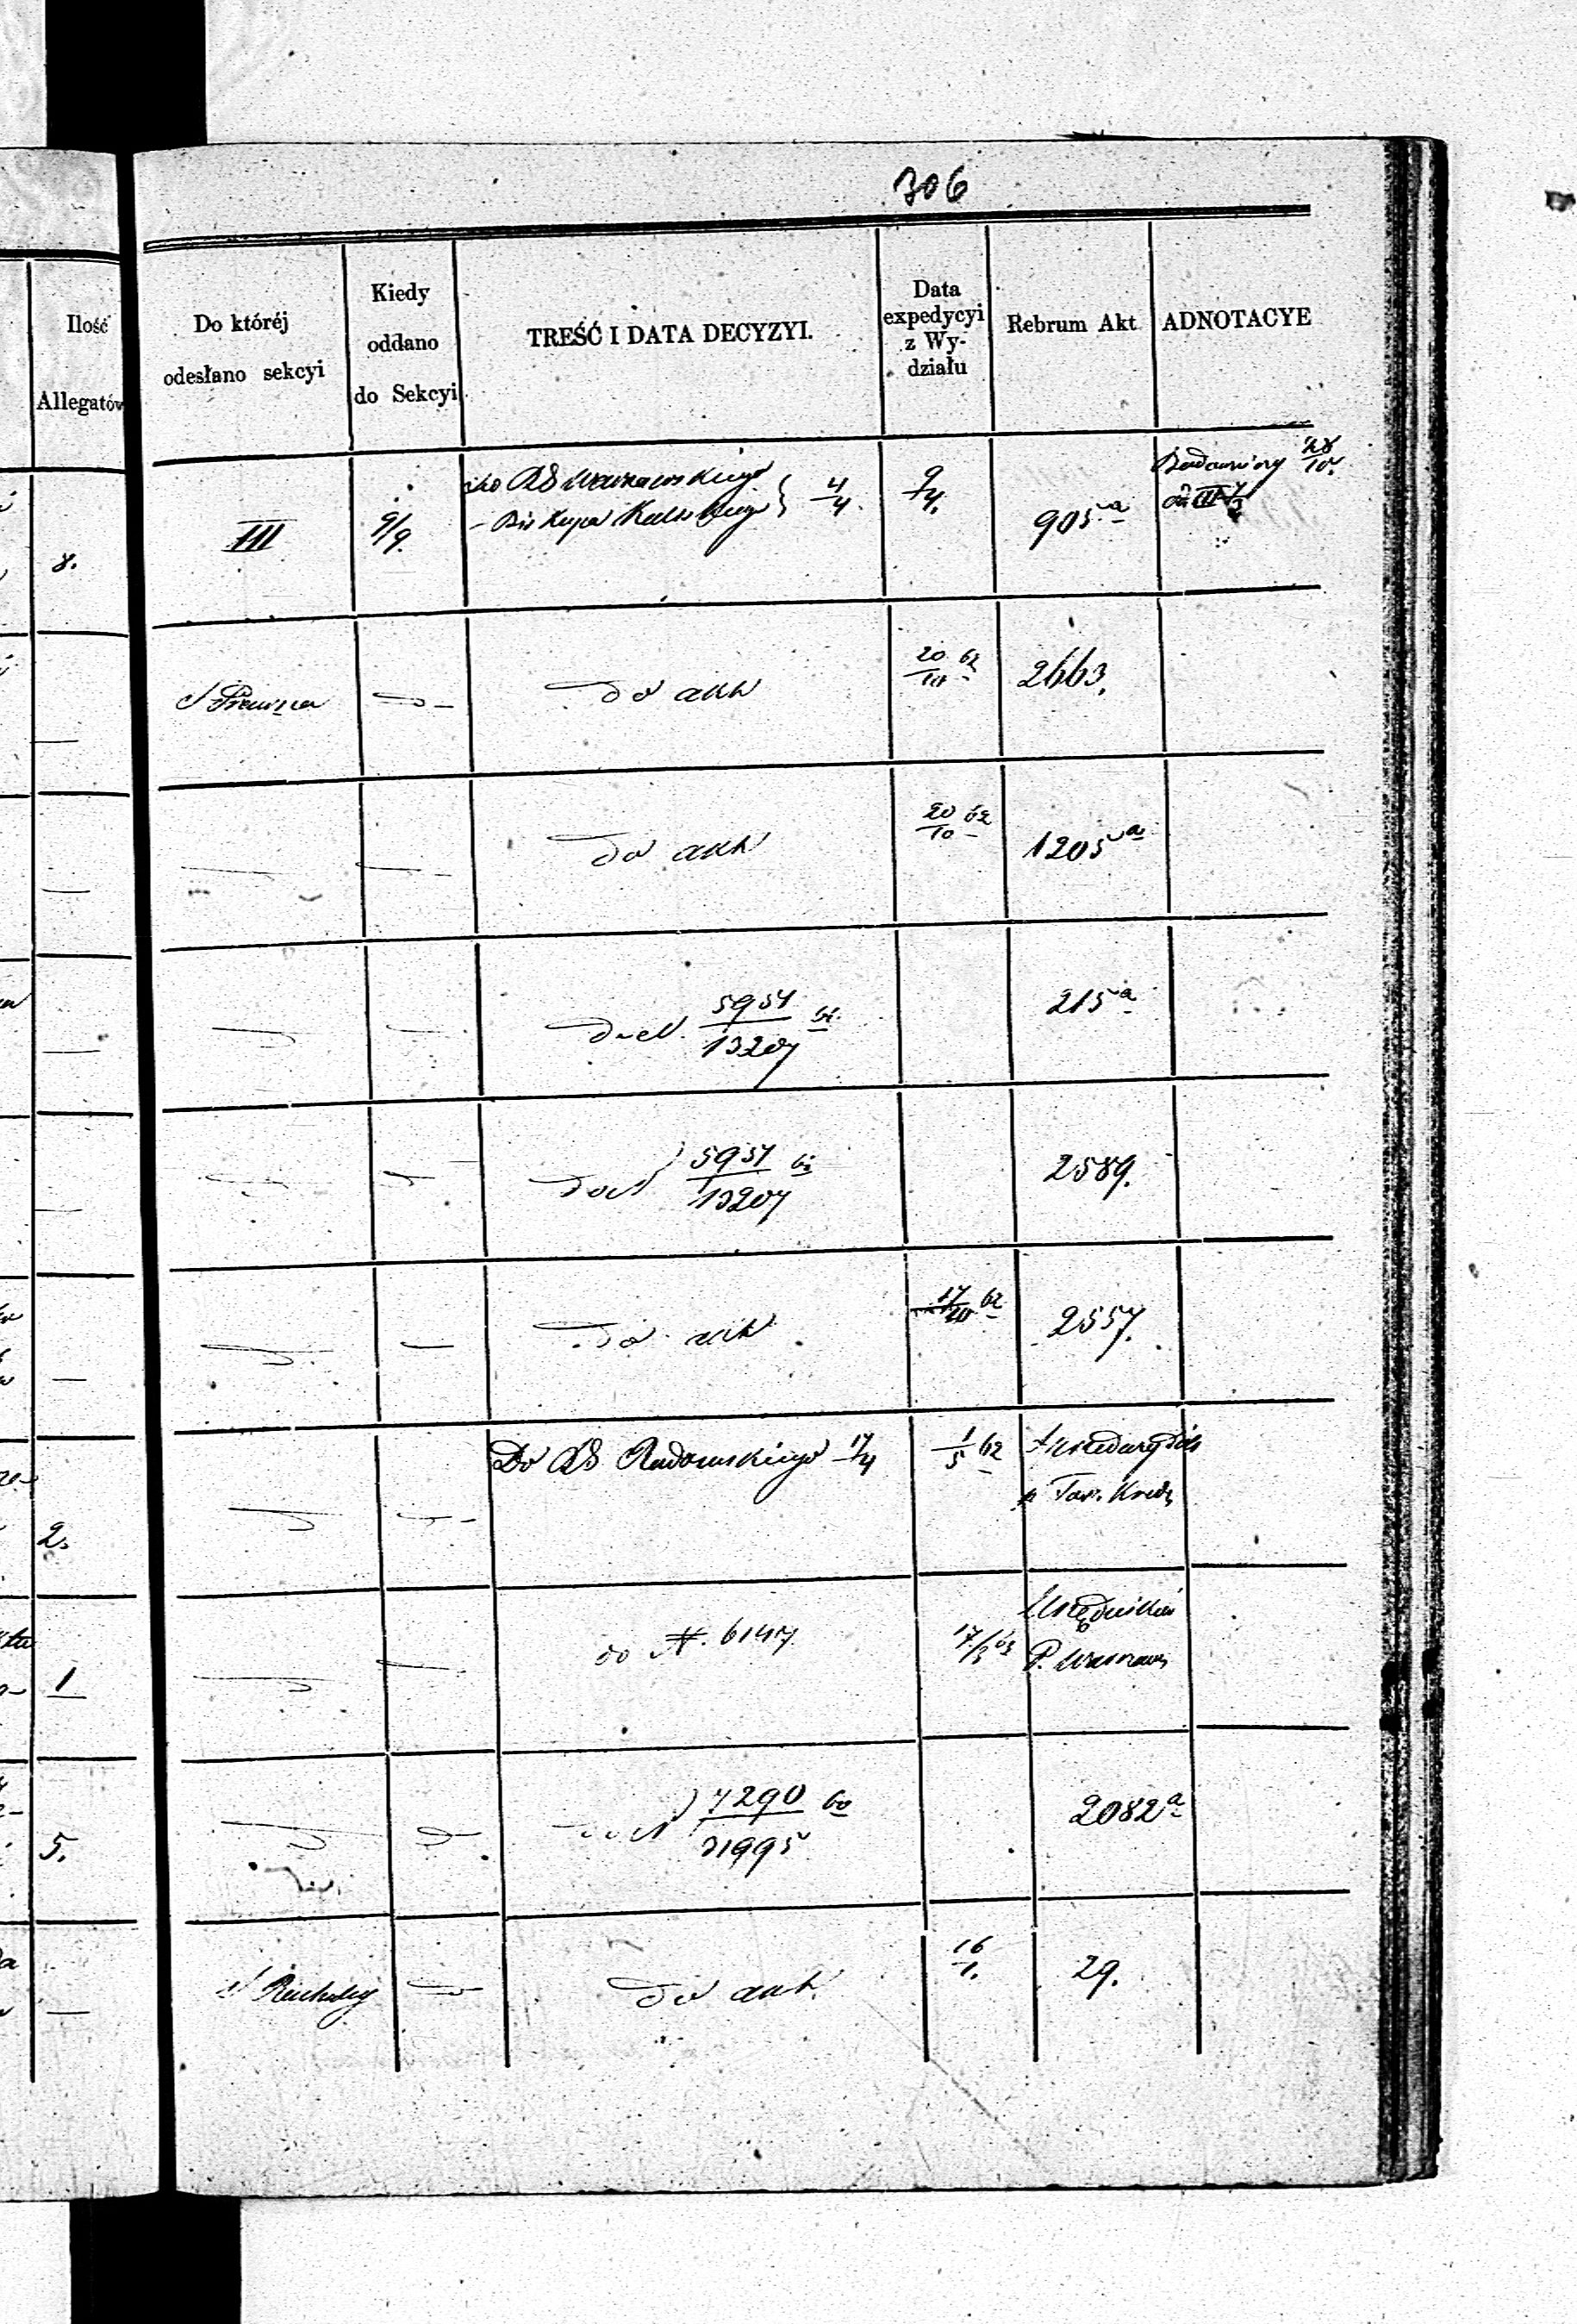 306
Ilość
Allegatów
Do któréj
odesłano sekcyi
Kiedy
oddano
do Sekcyi
TREŚĆ I DATA DECYZYI.
Data
expedycyi
z Wy-
działu
Rebrum Akt
ADNOTACYE
8.
III
9/9.
do RG Warszawskiego
- Biskupa Kieleckiego } 4/4.
9/4.
905 a
28/10.
do akt
20/10 62
2663.
do akt
20/10 62
1205 a
do N. 5957/13207 62.
215 a
do N 5957/13207 62
2589.
do akt
17/10 62
2557.
2.
Do RG Radomskiego 17/4
1/5 62
p Tow. Kred.
1
do N. 6147.
17/3 63
Urzędników
P. Warszaws
5.
do N 7290/31995 60
2082 a
do akt.
16/1.
29.